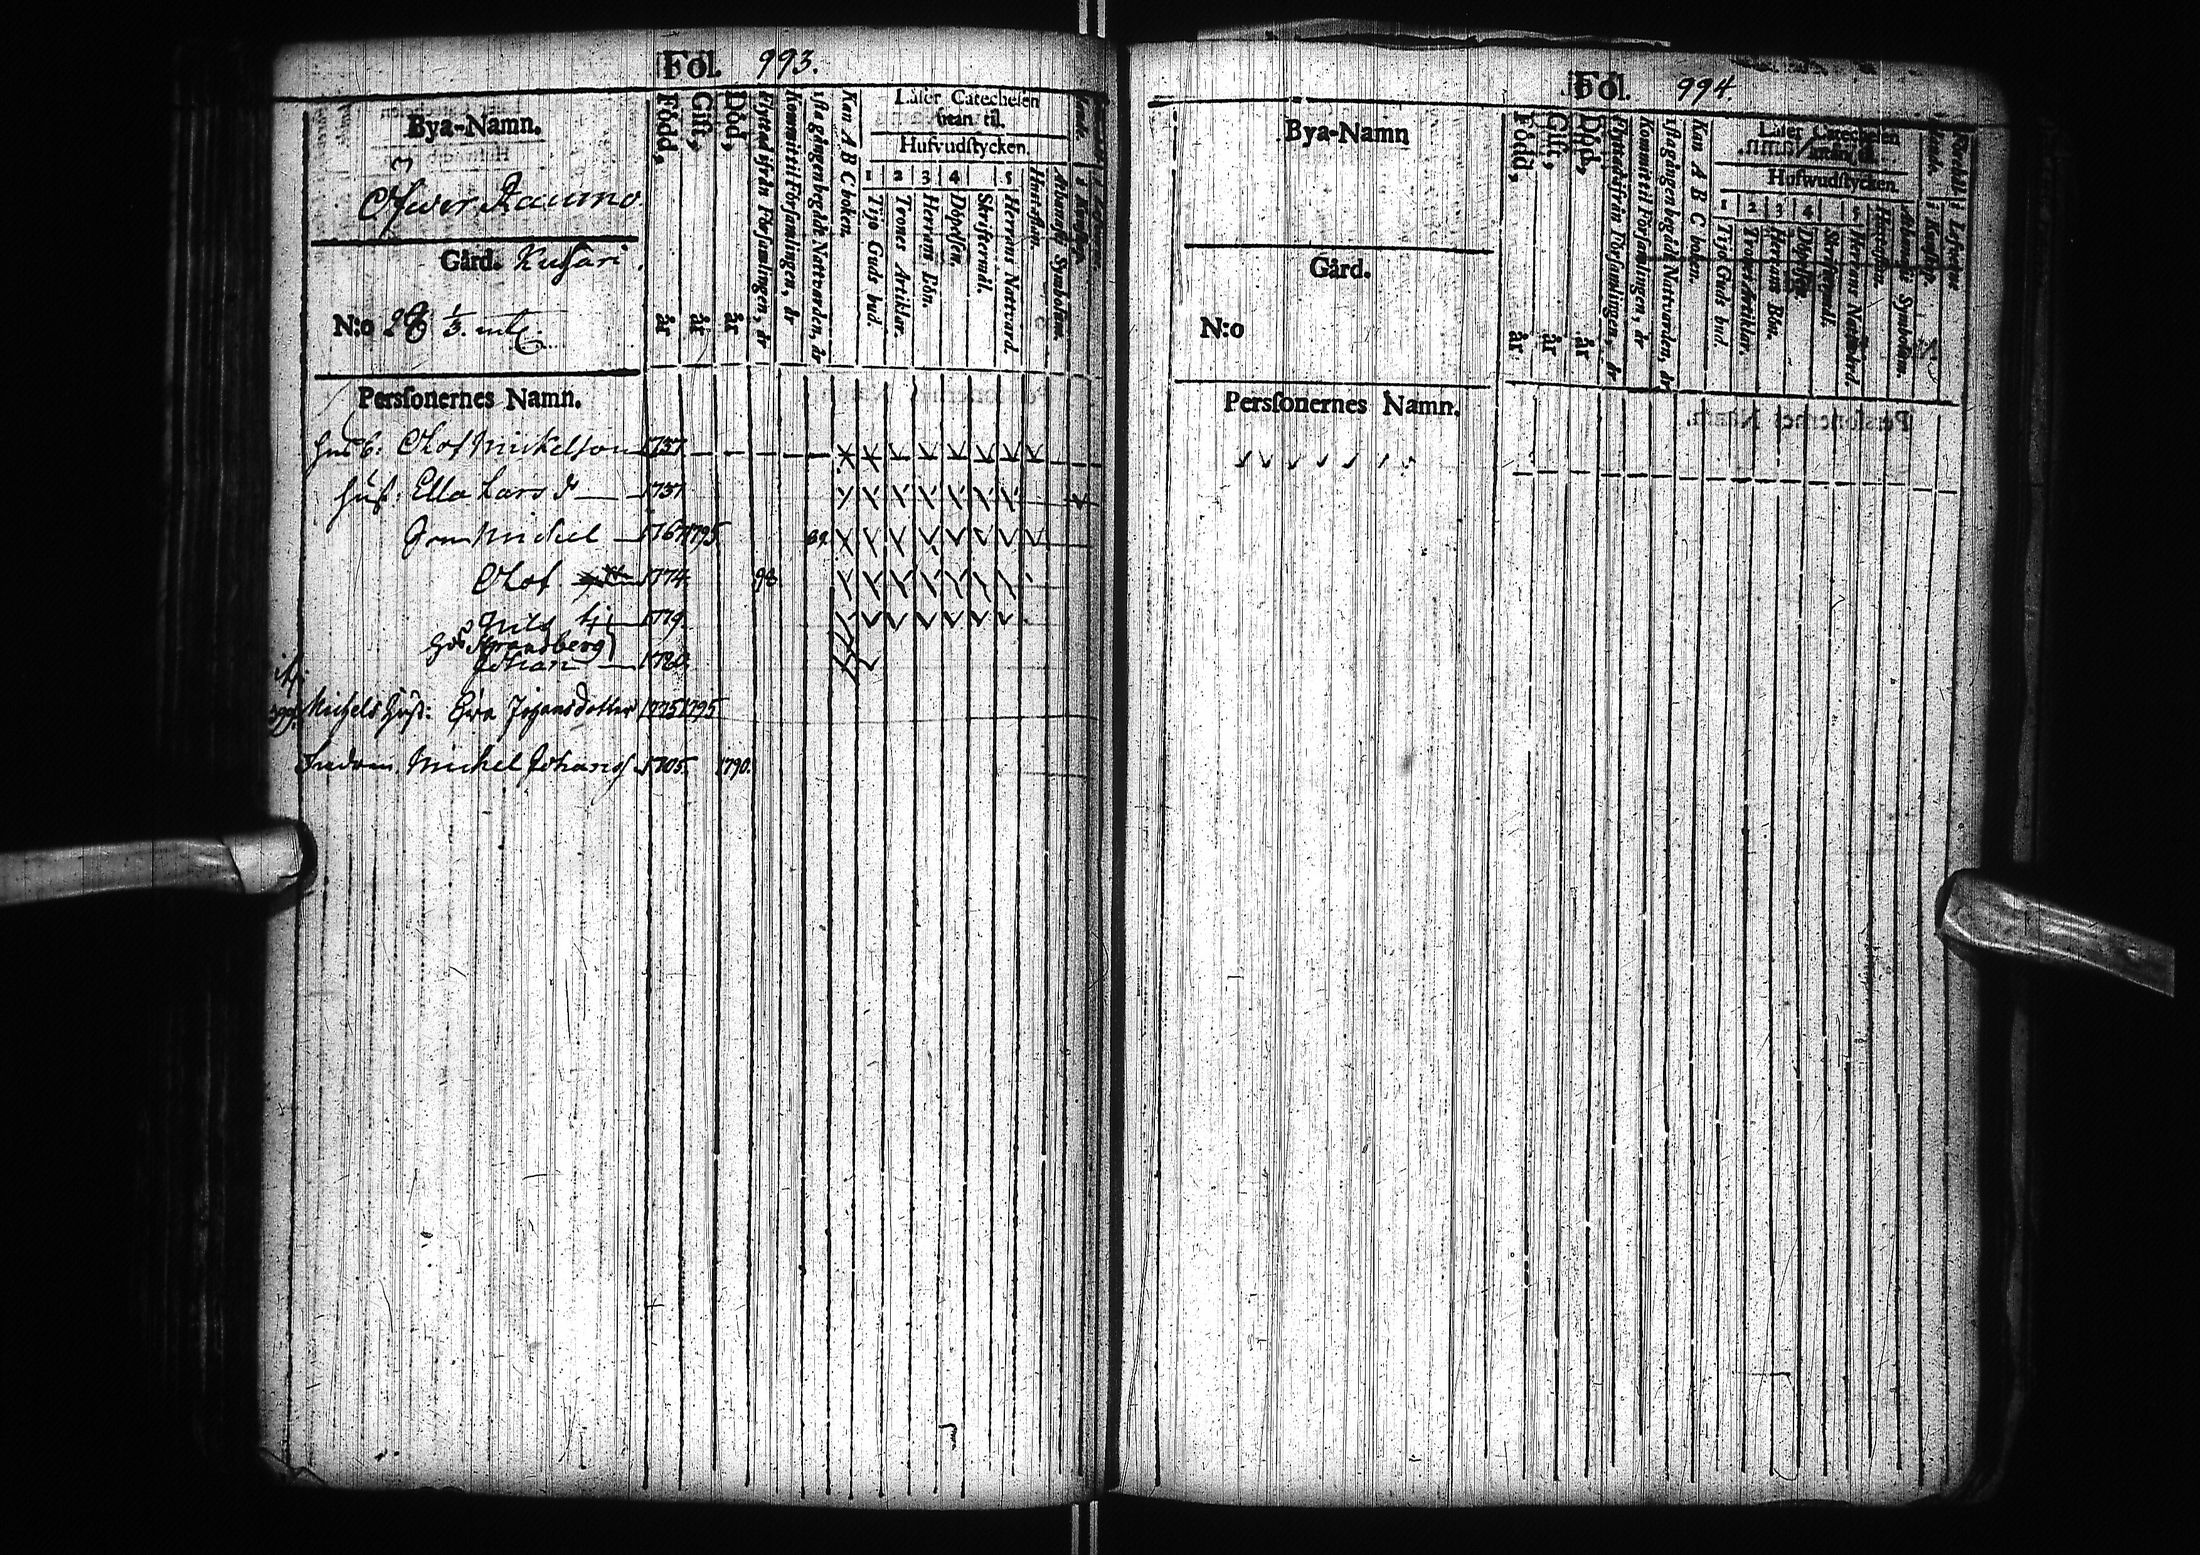 Fol. 993.
Bya-Namn.
Öfwer Raumo
Gård. Kusari.
N:o 28 1/3. mtl.
Personernes Namn.
Född, år
Gift, år
Död, år
Flyttad ifrån Församlingen, år
Kommit til Församlingen, år
1sta gången begådt Nattvarden, år
Kan A B C boken.
Läser Catechesen
utan til.
Hufvudstycken.
1 2 3 4 5
Tijo Guds bud.
Trones Artiklar.
Herrans Bön.
Döpelsen.
Skriftermål.
Herrans Nattvard.
Hustaflan.
Athanasii Symbolum.
husb: Olof Mickelson 1737
hust: Ella Lars d 1737
Son Mickel 1767 1795 89
Olof 1774 98
Nils 1779
hos Strandberg
Johan 1780
Michels hust: Eva Johansdotter 1775 1795
Mickel Johans 1705. 1790.
Fol. 994.
Bya-Namn
Gård.
N:o
Personernes Namn.
Född, år
Gift, år
Död, år
Flyttad ifrån Församlingen, år
Kommit til Församlingen, år
1sta gången begådt Nattvarden, år
Kan A B C boken.
Läser Catechesen
utan til.
Hufwudstycken.
1 2 3 4 5
Tijo Guds bud.
Trones Artiklar.
Herrans Bön.
Döpelsen.
Skriftermål.
Herrans Nattvard.
Hustaflan.
Athanasii Symbolum.